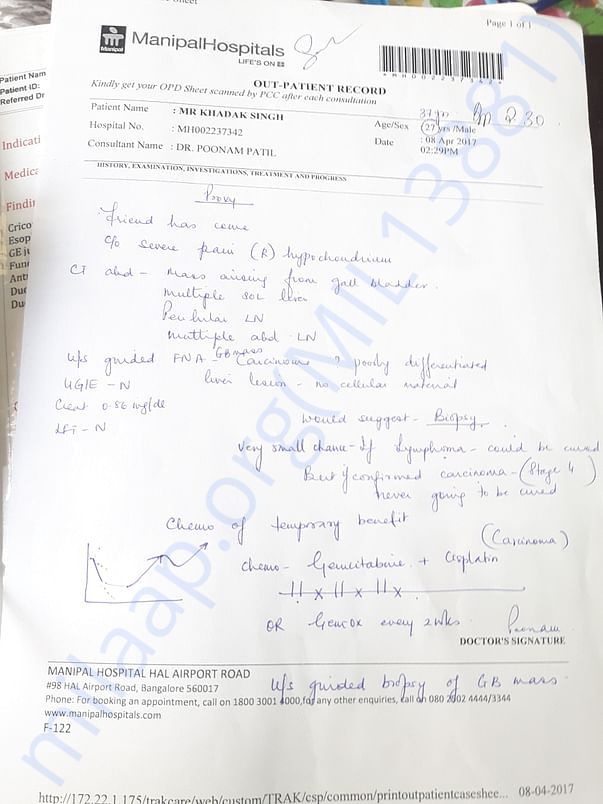 Page 1 of 1
ManipalHospitals
LIFE'S ON
MH002237342
OUT-PATIENT RECORD
Kindly get your OPD Sheet scanned by PCC after each consultation
Patient Name : MR KHADAK SINGH
Hospital No. : MH002237342
Consultant Name : DR. POONAM PATIL
37yrs
Age/Sex : 27 yrs /Male
Date : 08 Apr 2017
02:29PM
HISTORY, EXAMINATION, INVESTIGATIONS, TREATMENT AND PROGRESS
Proxy
Friend has come
c/o severe pain (R) hypochondrium
CT abd - Mass arising from gall bladder.
multiple SOL liver
LN
multiple abd LN
u/s guided FNA - GB mass Carcinoma ? poorly differentiated
liver lesion - no cellular material
UGIE - N
Creat 0.56 mg/dl
LFT - N
Would suggest - Biopsy
Very small chance - If lymphoma - could be cured
But if confirmed carcinoma - (Stage 4)
never going to be cured
Chemo of temporary benefit
(Carcinoma)
Chemo - Gemcitabine + Cisplatin
OR Gemox every 2wks
Poonam
DOCTOR'S SIGNATURE
MANIPAL HOSPITAL HAL AIRPORT ROAD
#98 HAL Airport Road, Bangalore 560017
u/s guided biopsy of GB mass
Phone: For booking an appointment, call on 1800 3001 4000, for any other enquiries, call on 080 2002 4444/3344
www.manipalhospitals.com
F-122
http://172.22.1.175/trakcare/web/custom/TRAK/csp/common/printoutpatientcaseshee... 08-04-2017
Patient Nam
Patient ID:
Referred Dr
Indicati
Medica
Findin
Crico
Esop
GE ju
Fund
Antr
Duo
Du
milaap.org(MIL13881)